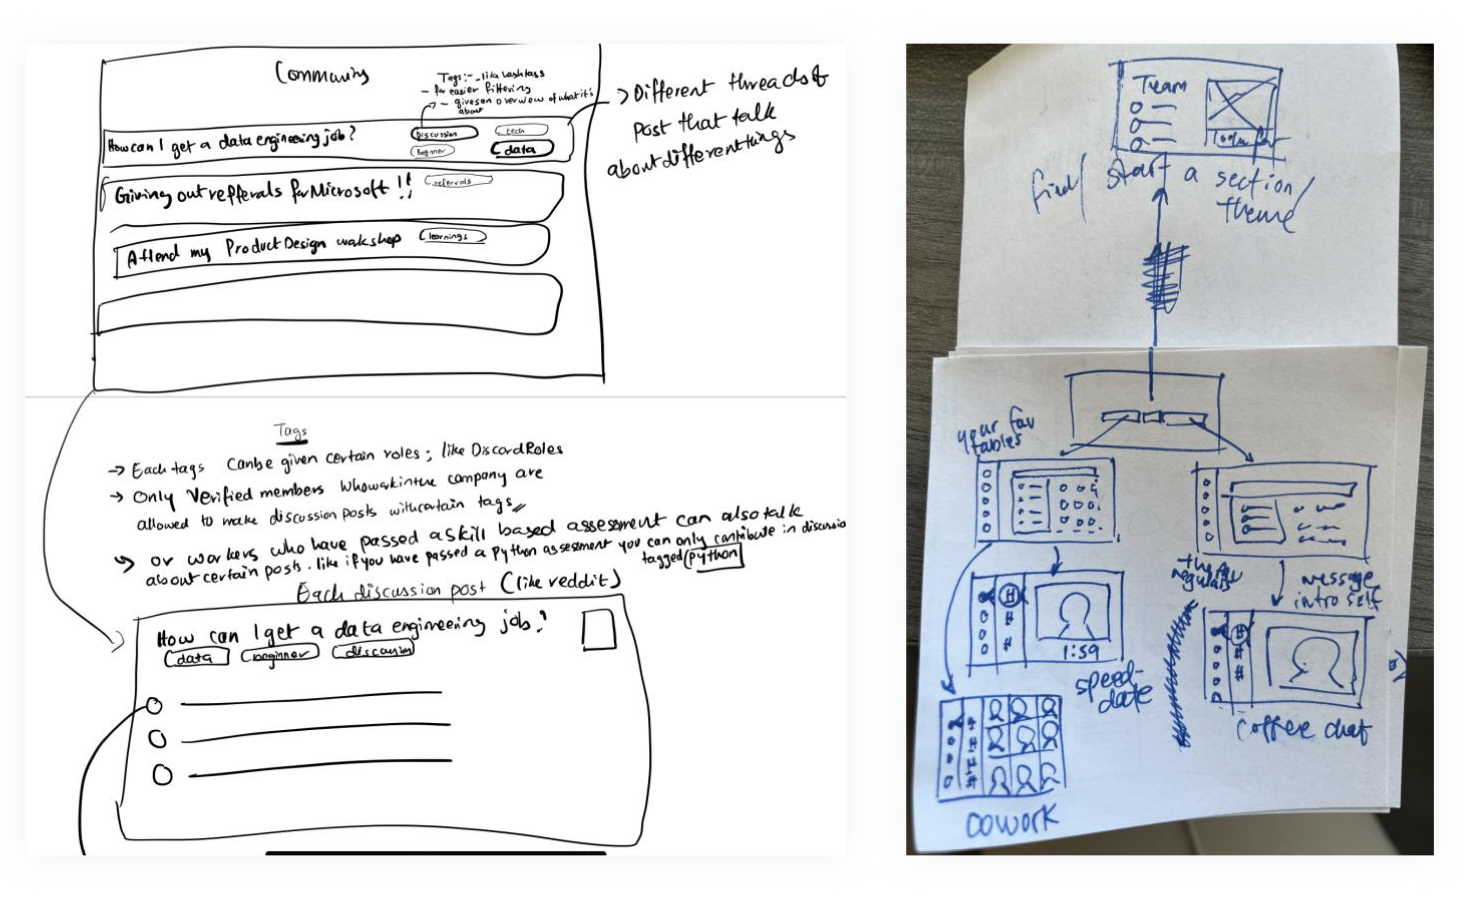 Community
Tags:- -like hashtags
- for easier filtering
- gives an overview of what it's
about
How can I get a data engineering job?
discussion
tech
beginner
data
Giving out refferals for Microsoft !!
referrals
Attend my Product Design wokshop
learnings
Different threads of
post that talk
about different things
Tags
→ Each tags can be given certain roles; like Discord Roles
→ Only Verified members who work in the company are
allowed to make discussion posts with certain tags
or workers who have passed a skill based assessment can also talk
about certain posts. like if you have passed a Python assessment you can only contribute in discussion
tagged python
Each discussion post (like reddit)
How can I get a data engineering job?
data
beginner
discussion
Team
find/ start a section/
theme
your fav
tables
the
regulars
message,
intro self
1:59
speed-
date
coffee chat
cowork